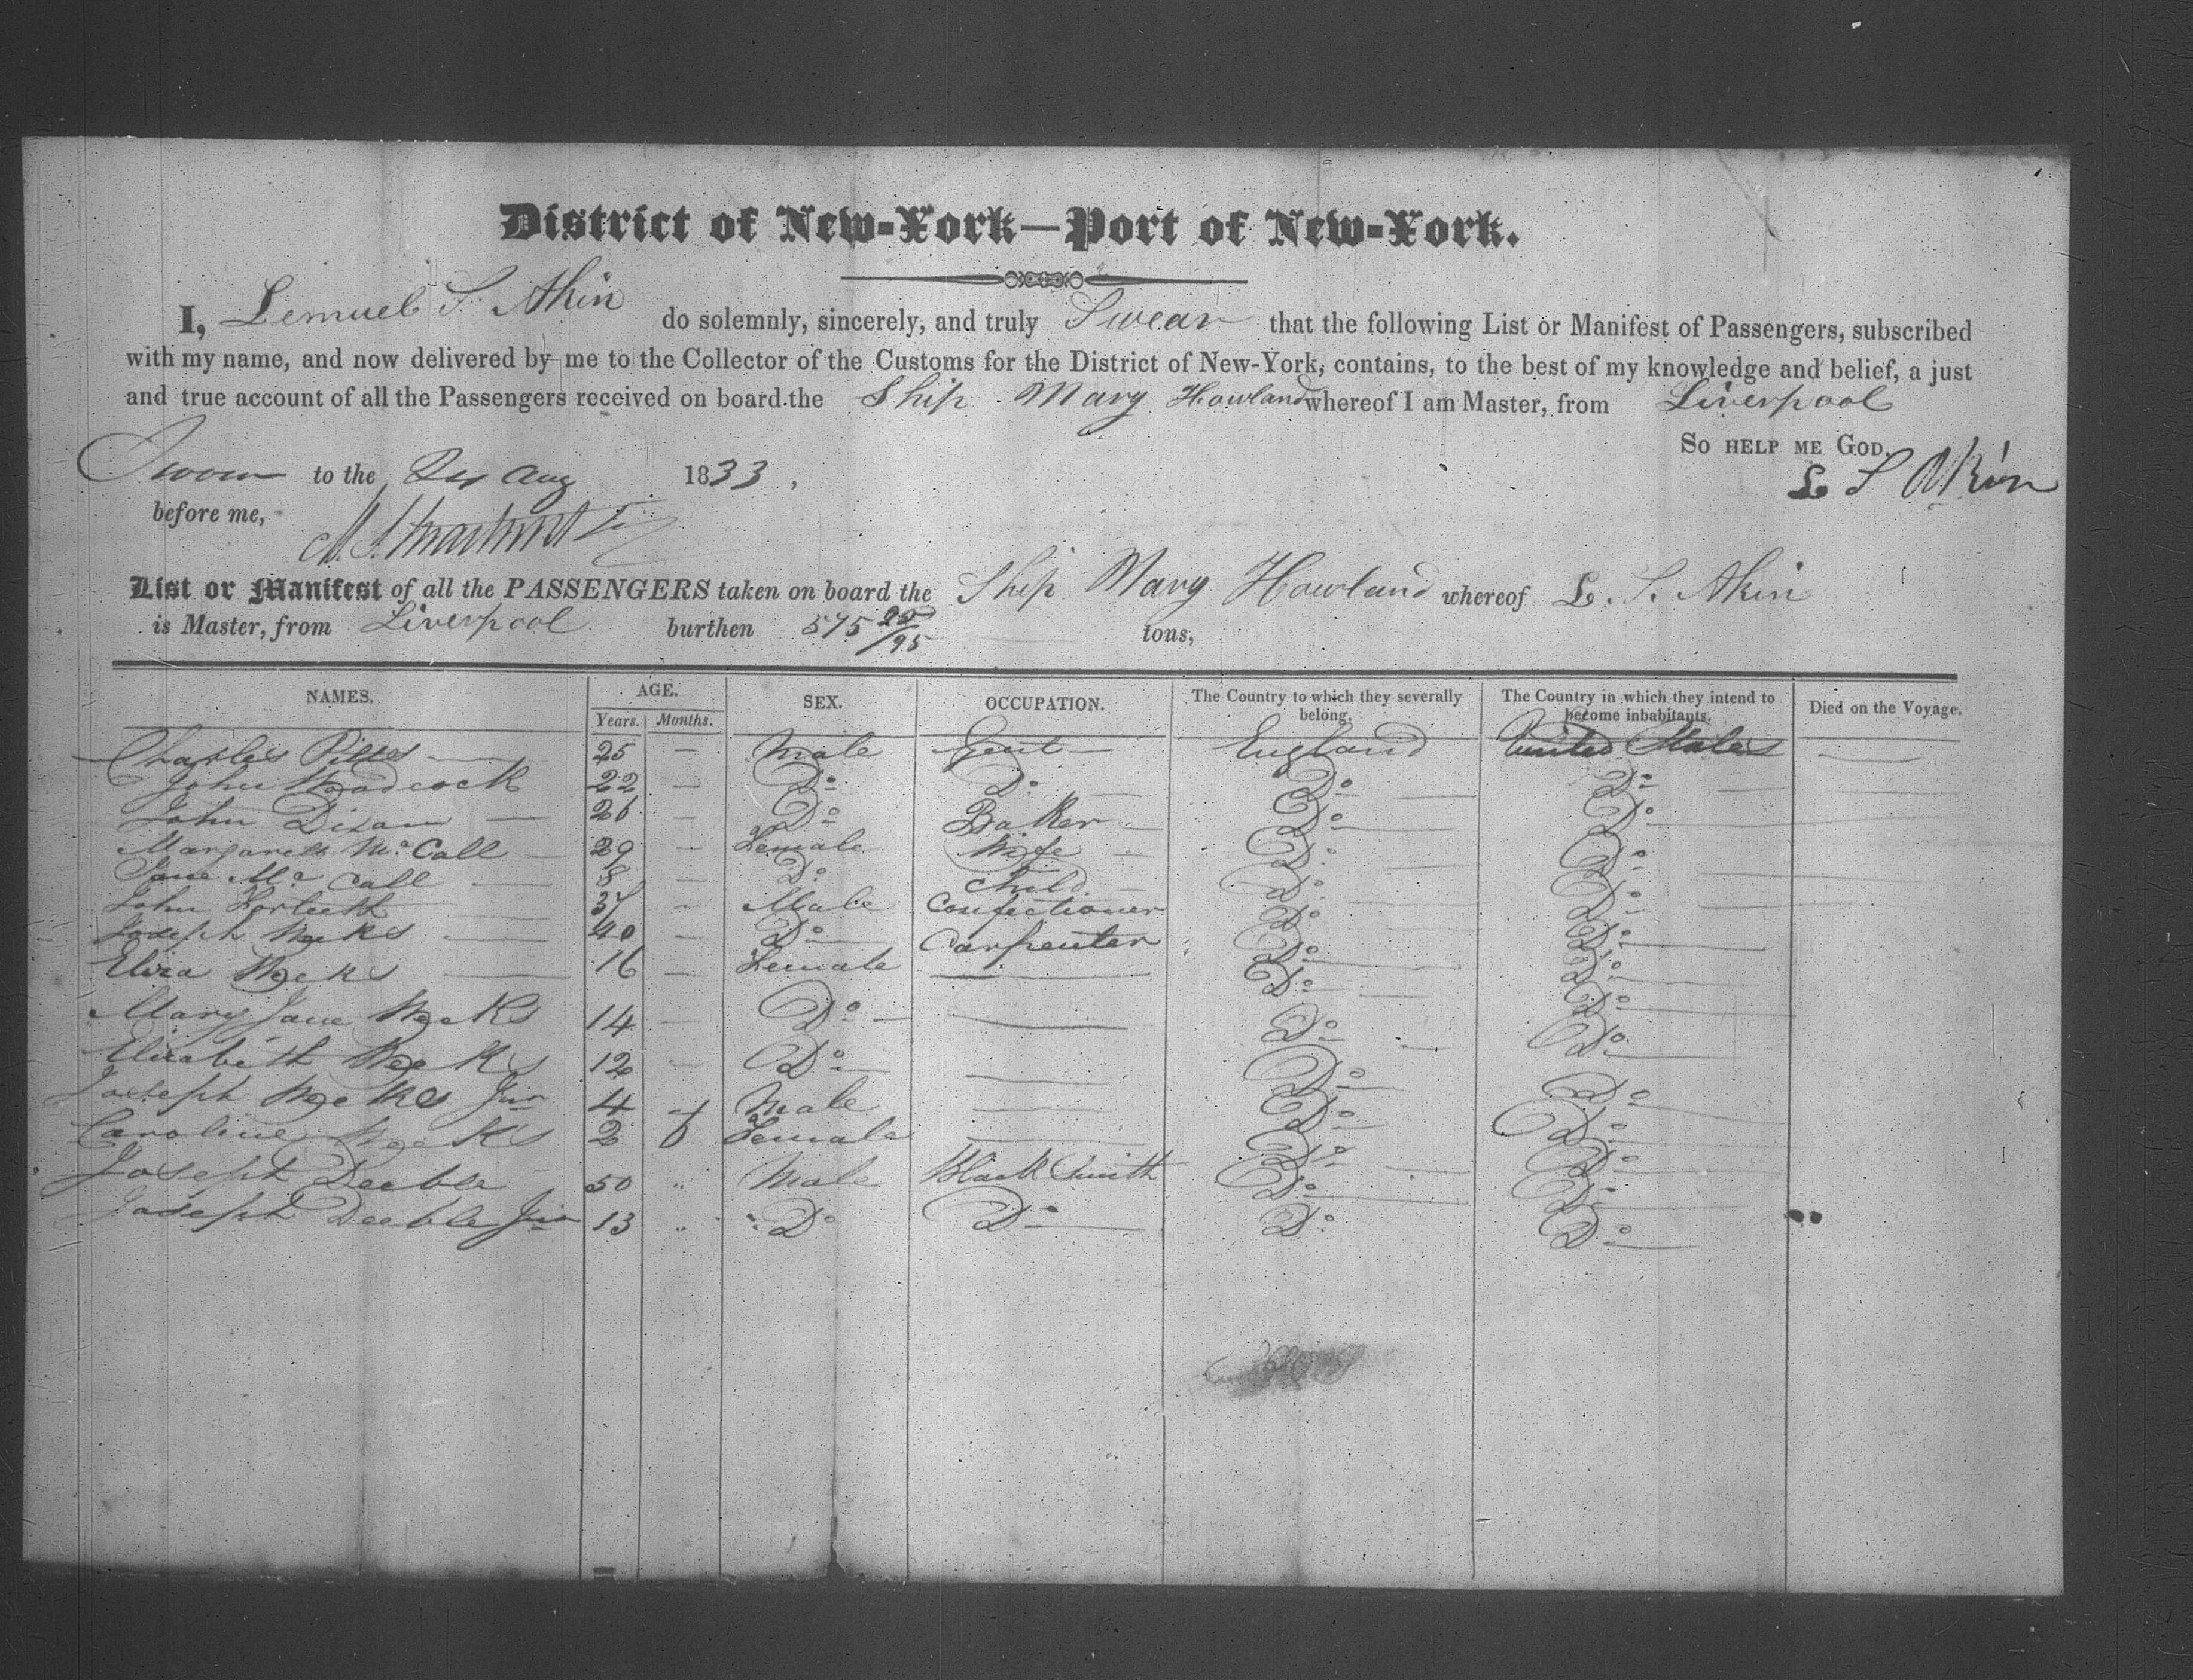 District of New-York—Port of New-York.
I, Lemuel S. Akin do solemnly, sincerely, and truly Swear that the following List or Manifest of Passengers, subscribed
with my name, and now delivered by me to the Collector of the Customs for the District of New-York, contains, to the best of my knowledge and belief, a just
and true account of all the Passengers received on board the Ship Mary Howland whereof I am Master, from Liverpool
So help me God.
L S Akin
Sworn to the 24 Aug 1833,
before me,
List or Manifest of all the PASSENGERS taken on board the Ship Mary Howland whereof L. S. Akin
is Master, from Liverpool burthen 575 25/95 tons,
NAMES. AGE. Years. Months. SEX. OCCUPATION. The Country to which they severally belong. The Country in which they intend to become inhabitants. Died on the Voyage.
Charles 25 — Male Gent — England United States —
John Woodcock 22 — Do Do — Do — Do —
John Dixon — 26 — Do Baker — Do — Do —
Margarett Mc Call — 29 — Female Wife — Do Do —
Jane Mc Call — 8 — Do Child — Do Do —
John — 37 — Male Confectioner Do Do —
Joseph Weeks — 40 — Do — Carpenter Do — Do —
Eliza Weeks — 16 — Female — Do — Do —
Mary Jane Weeks 14 — Do — — Do — Do
Elizabeth Weeks 12 — Do — — Do — Do
Joseph Weeks Jun 4 — Male — Do — Do
Caroline Weeks 2 6 Female — Do Do
Joseph Deeble 50 " Male Black Smith Do — Do
Joseph Deeble Jun 13 " Do Do — Do Do —